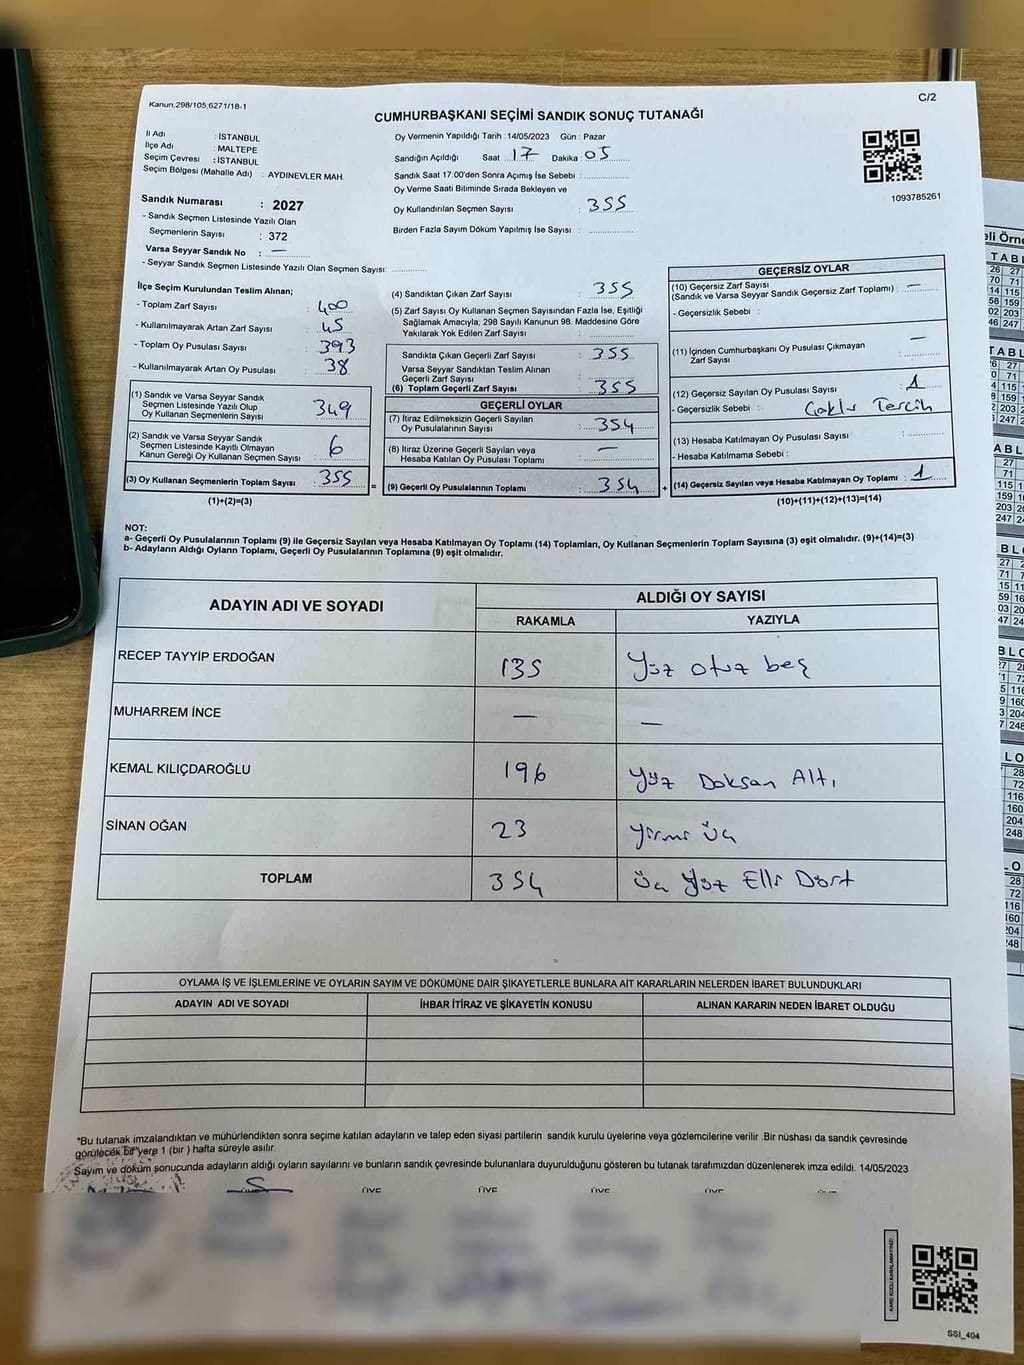 Kanun;298/105,6271/18-1
C/2
CUMHURBAŞKANI SEÇİMİ SANDIK SONUÇ TUTANAĞI
İl Adı : İSTANBUL
İlçe Adı : MALTEPE
Seçim Çevresi : İSTANBUL
Seçim Bölgesi (Mahalle Adı) : AYDINEVLER MAH.
Sandık Numarası : 2027
- Sandık Seçmen Listesinde Yazılı Olan
Seçmenlerin Sayısı : 372
Varsa Seyyar Sandık No : —
- Seyyar Sandık Seçmen Listesinde Yazılı Olan Seçmen Sayısı:
Oy Vermenin Yapıldığı Tarih : 14/05/2023 Gün : Pazar
Sandığın Açıldığı Saat : 17 Dakika : 05
Sandık Saat 17.00'den Sonra Açımış İse Sebebi :
Oy Verme Saati Bitiminde Sırada Bekleyen ve
Oy Kullandırılan Seçmen Sayısı : 355
Birden Fazla Sayım Döküm Yapılmış İse Sayısı :
1093785261
İlçe Seçim Kurulundan Teslim Alınan;
- Toplam Zarf Sayısı : 400
- Kullanılmayarak Artan Zarf Sayısı : 45
- Toplam Oy Pusulası Sayısı : 393
- Kullanılmayarak Artan Oy Pusulası : 38
(1) Sandık ve Varsa Seyyar Sandık
Seçmen Listesinde Yazılı Olup
Oy Kullanan Seçmenlerin Sayısı : 349
(2) Sandık ve Varsa Seyyar Sandık
Seçmen Listesinde Kayıtlı Olmayan
Kanun Gereği Oy Kullanan Seçmen Sayısı : 6
(3) Oy Kullanan Seçmenlerin Toplam Sayısı : 355
(1)+(2)=(3)
(4) Sandıktan Çıkan Zarf Sayısı : 355
(5) Zarf Sayısı Oy Kullanan Seçmen Sayısından Fazla İse, Eşitliği
Sağlamak Amacıyla; 298 Sayılı Kanunun 98. Maddesine Göre
Yakılarak Yok Edilen Zarf Sayısı :
Sandıkta Çıkan Geçerli Zarf Sayısı : 355
Varsa Seyyar Sandıktan Teslim Alınan
Geçerli Zarf Sayısı :
(6) Toplam Geçerli Zarf Sayısı : 355
GEÇERLİ OYLAR
(7) İtiraz Edilmeksizin Geçerli Sayılan
Oy Pusulalarının Sayısı : 354
(8) İtiraz Üzerine Geçerli Sayılan veya
Hesaba Katılan Oy Pusulası Toplamı : —
=
(9) Geçerli Oy Pusulalarının Toplamı : 354
+
GEÇERSİZ OYLAR
(10) Geçersiz Zarf Sayısı
(Sandık ve Varsa Seyyar Sandık Geçersiz Zarf Toplamı) : —
- Geçersizlik Sebebi :
(11) İçinden Cumhurbaşkanı Oy Pusulası Çıkmayan
Zarf Sayısı : —
(12) Geçersiz Sayılan Oy Pusulası Sayısı : 1
- Geçersizlik Sebebi : Çoklu Tercih
(13) Hesaba Katılmayan Oy Pusulası Sayısı :
- Hesaba Katılmama Sebebi :
(14) Geçersiz Sayılan veya Hesaba Katılmayan Oy Toplamı : 1
(10)+(11)+(12)+(13)=(14)
NOT:
a- Geçerli Oy Pusulalarının Toplamı (9) ile Geçersiz Sayılan veya Hesaba Katılmayan Oy Toplamı (14) Toplamları, Oy Kullanan Seçmenlerin Toplam Sayısına (3) eşit olmalıdır. (9)+(14)=(3)
b- Adayların Aldığı Oyların Toplamı, Geçerli Oy Pusulalarının Toplamına (9) eşit olmalıdır.
ADAYIN ADI VE SOYADI
ALDIĞI OY SAYISI
RAKAMLA YAZIYLA
RECEP TAYYİP ERDOĞAN 135 Yüz otuz beş
MUHARREM İNCE — —
KEMAL KILIÇDAROĞLU 196 Yüz Doksan Altı
SİNAN OĞAN 23 Yirmi üç
TOPLAM 354 üç Yüz Elli Dört
OYLAMA İŞ VE İŞLEMLERİNE VE OYLARIN SAYIM VE DÖKÜMÜNE DAİR ŞİKAYETLERLE BUNLARA AİT KARARLARIN NELERDEN İBARET BULUNDUKLARI
ADAYIN ADI VE SOYADI İHBAR İTİRAZ VE ŞİKAYETİN KONUSU ALINAN KARARIN NEDEN İBARET OLDUĞU
*Bu tutanak imzalandıktan ve mühürlendikten sonra seçime katılan adayların ve talep eden siyasi partilerin sandık kurulu üyelerine veya gözlemcilerine verilir .Bir nüshası da sandık çevresinde
görülecek bir yere 1 (bir ) hafta süreyle asılır.
Sayım ve döküm sonucunda adayların aldığı oyların sayılarını ve bunların sandık çevresinde bulunanlara duyurulduğunu gösteren bu tutanak tarafımızdan düzenlenerek imza edildi. 14/05/2023
ÜYE ÜYE ÜYE ÜYE
KARE KODU KARALAMAYINIZ!
SSI_404